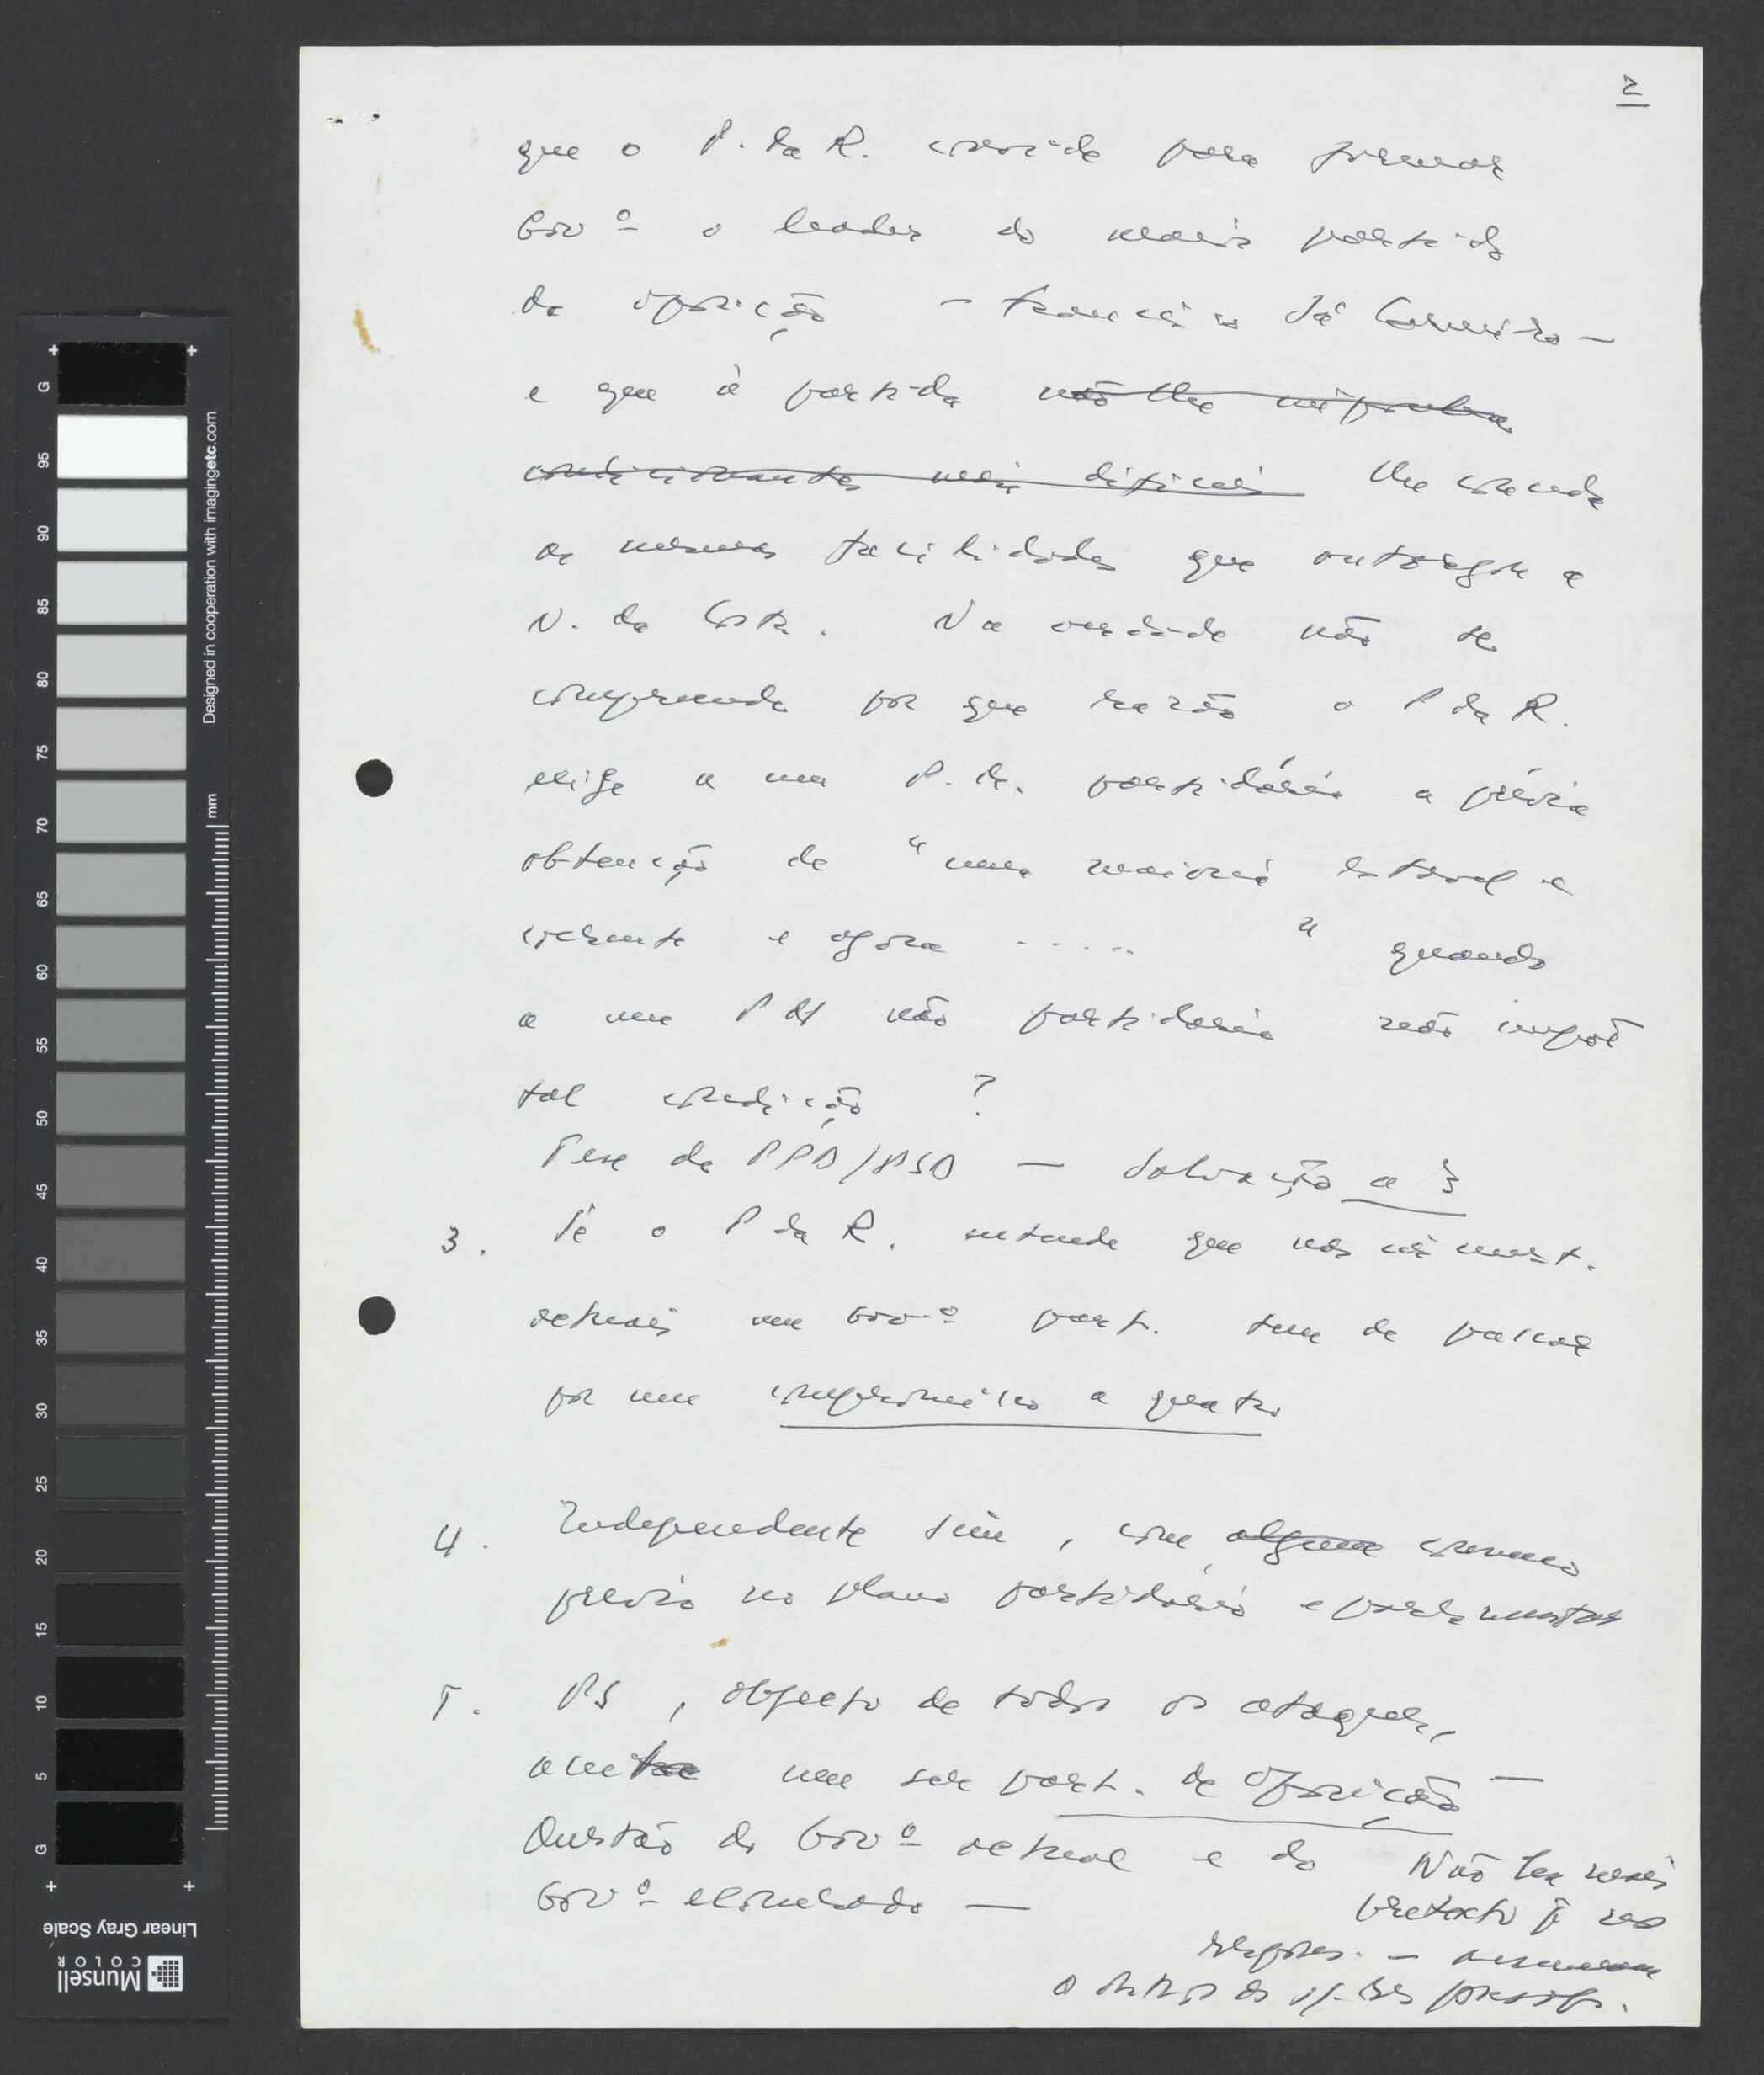 2
que o P. da R. convide para formar
Govº o leader do maior partido
da oposição - Francisco Sá Carneiro -
e que à partida não lhe imponha
condicionantes mais difíceis lhe conceda
as mesmas facilidades que outorgou a
N. da Costa. Na verdade não se
compreende por que razão o P da R.
exige a um P. M. partidário a prévia
obtenção de "uma maioria estável e
coerente e agora ....." quando
a um PM não partidário não impõe
tal condição ?
Tese do PPD/PSD — Salvação a 3
3. Se o P da R. entende que nas circunst.
actuais um Govº part. tem de passar
por um compromisso a quatro
4. Independente sim, com algum consenso
prévio no plano partidário e parlamentar
5. PS, objecto de todos os ataques,
em ser part. de oposição —
Questão do Govº actual e do
Govº exonerado —
Não ter mais
pretexto
o
Designed in cooperation with imagingetc.com
mm
G
95
90
85
80
75
70
65
60
55
50
45
40
35
30
25
20
15
10
5
G
Linear Gray Scale
Munsell
COLOR